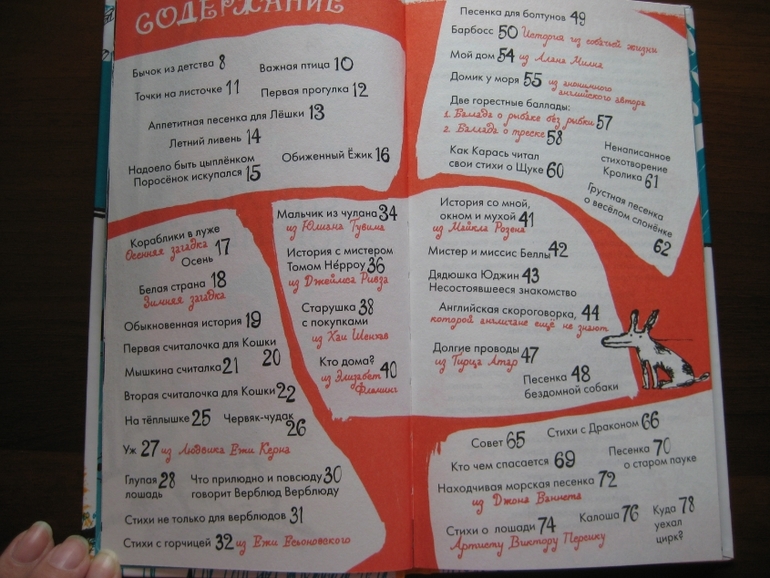 СОДЕРЖАНИЕ
Бычок из детства 8
Важная птица 10
Точки на листочке 11
Первая прогулка 12
Аппетитная песенка для Лёшки 13
Летний ливень 14
Надоело быть цыплёнком
Поросёнок искупался 15
Обиженный Ёжик 16
Кораблики в луже
Осенняя загадка 17
Осень
Белая страна 18
Зимняя загадка
Обыкновенная история 19
Первая считалочка для Кошки 20
Мышкина считалка 21
Вторая считалочка для Кошки 22
На тёплышке 25
Червяк-чудак 26
Уж 27 из Людвика Ежи Керна
Глупая 28
лошадь
Что прилюдно и повсюду 30
говорит Верблюд Верблюду
Стихи не только для верблюдов 31
Стихи с горчицей 32 из Ежи
Мальчик из чулана 34
из Юлиана Тувима
История с мистером
Томом Не́рроу 36
из Джеймса Ривза
Старушка 38
с покупками
из Хаи
Кто дома? 40
из Элизабет
Флеминг
Песенка для балтунов 49
Барбосс 50 История из собачей жизни
Мой дом 54 из Алана Милна
Домик у моря 55 из анонимного
английского автора
Две горестные баллады:
1. Баллада о рыбаке без рыбки 57
2. Баллада о треске 58
Как Карась читал
свои стихи о Щуке 60
Ненаписанное
стихотворение
Кролика 61
Грустная песенка
о весёлом слонёнке
62
История со мной,
окном и мухой 41
из Майкла Розена
Мистер и миссис Беллы 42
Дядюшка Юджин 43
Несостоявшееся знакомство
Английская скороговорка, 44
которой англичане ещё не знают
Долгие проводы 47
из Тирца Атар
Песенка 48
бездомной собаки
Совет 65
Стихи с Драконом 66
Кто чем спасается 69
Песенка 70
о старом пауке
Находчивая морская песенка 72
из Джона
Стихи о лошади 74
Артисту Виктору
Калоша 76
Куда 78
уехал
цирк?